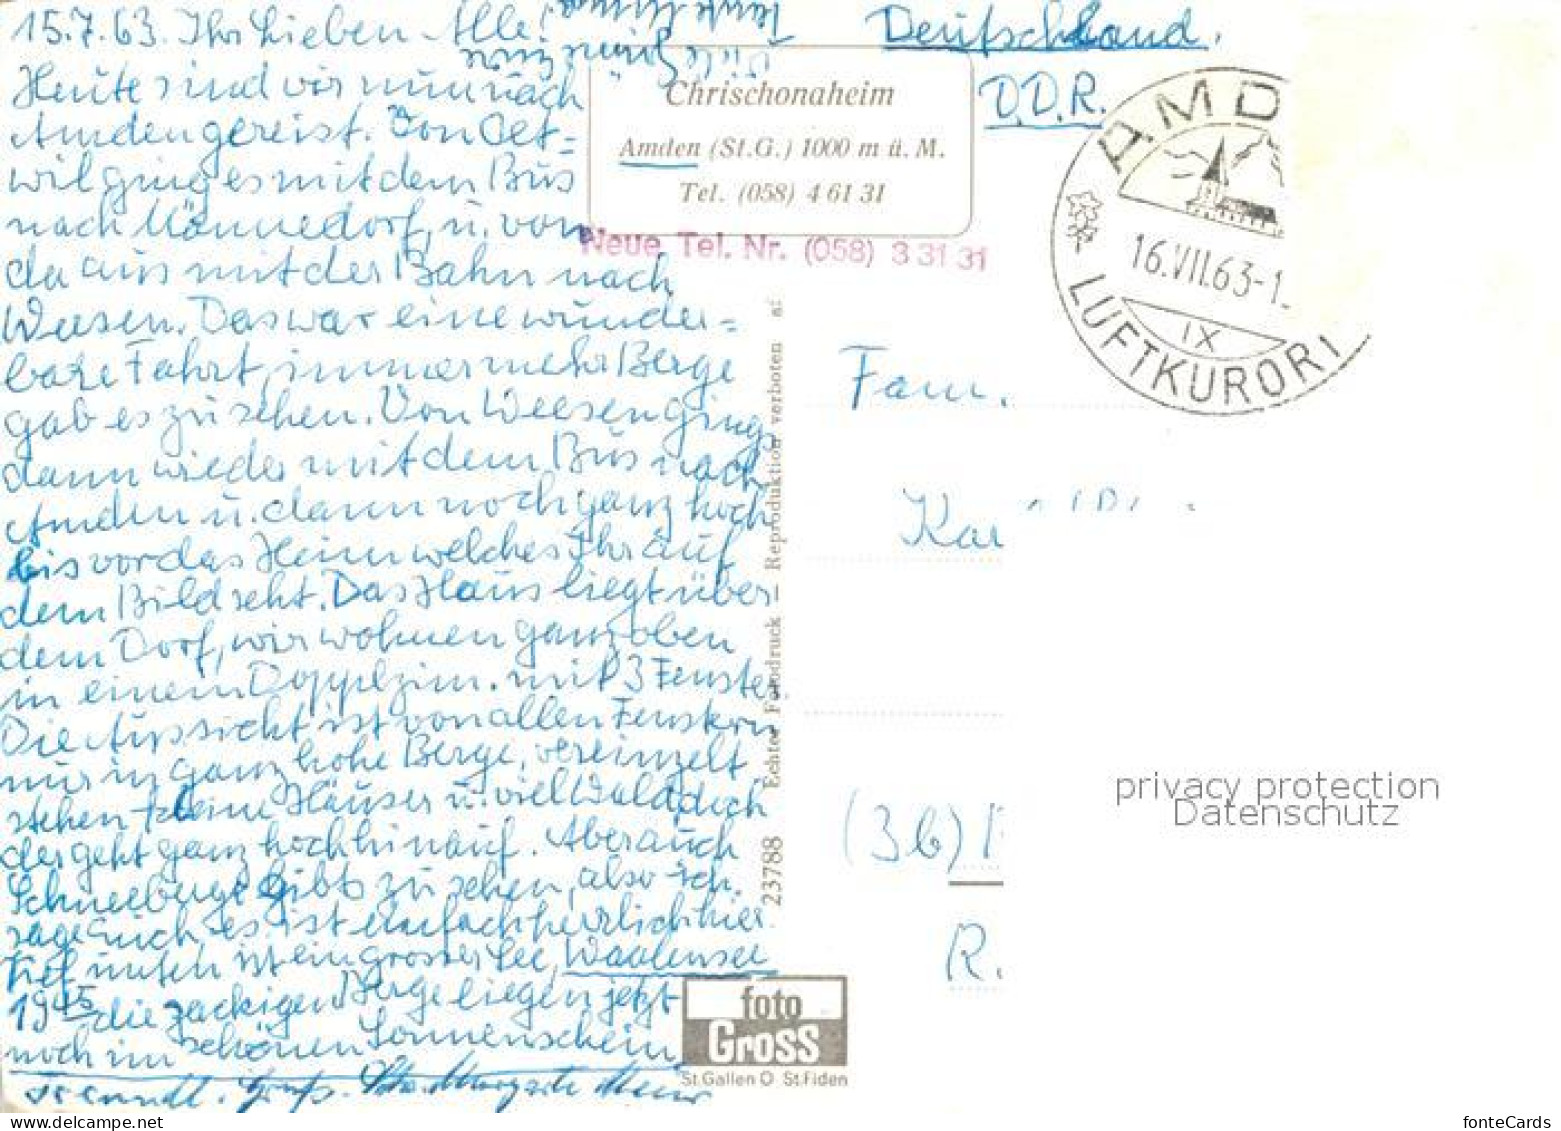 15.7.63. Ihr Lieben Alle!
Heute sind wir nun nach
Amden gereist. Von Oet=
wil ging es mit dem Bus
nach Männedorf, u. von
da aus mit der Bahn nach
Weesen. Das war eine wunder=
bare Fahrt, immer mehr Berge
gab es zu sehen. Von Weesen gings
dann wieder mit dem Bus nach
Amden u. dann noch ganz hoch
bis vor das Heim welches Ihr auf
dem Bild seht. Das Haus liegt über
dem Dorf, wir wohnen ganz oben
in einem Dopplzim. mit 3 Fenster.
Die Aussicht ist von allen Fenstern
nur in ganz hohe Berge, vereinzelt
stehen kleine Häuser u. viel Wald doch
der geht ganz hoch hinauf. Aber auch
Schneeberge gibts zu sehen, also ich
sage Euch, es ist einfach herrlich hier.
Tief unten ist ein grosser See, Waalensee
19⁴⁵ die zackigen Berge liegen jetzt
noch im schönen Sonnenschein.
freundl. Gruß. Margarete
Viele Grüsse Eure
Tante
Chrischonaheim
Amden (St.G.) 1000 m ü. M.
Tel. (058) 4 61 31
Neue Tel. Nr. (058) 3 31 31
Deutschland.
D.D.R.
AMD
16.VII.63-1
IX
LUFTKURORT
Fam.
Kar
(3b)
R.
23788 Echter Fotodruck — Reproduktion verboten
foto
Gross
St.Gallen O St.Fiden
privacy protection
Datenschutz
www.delcampe.net
fonteCards